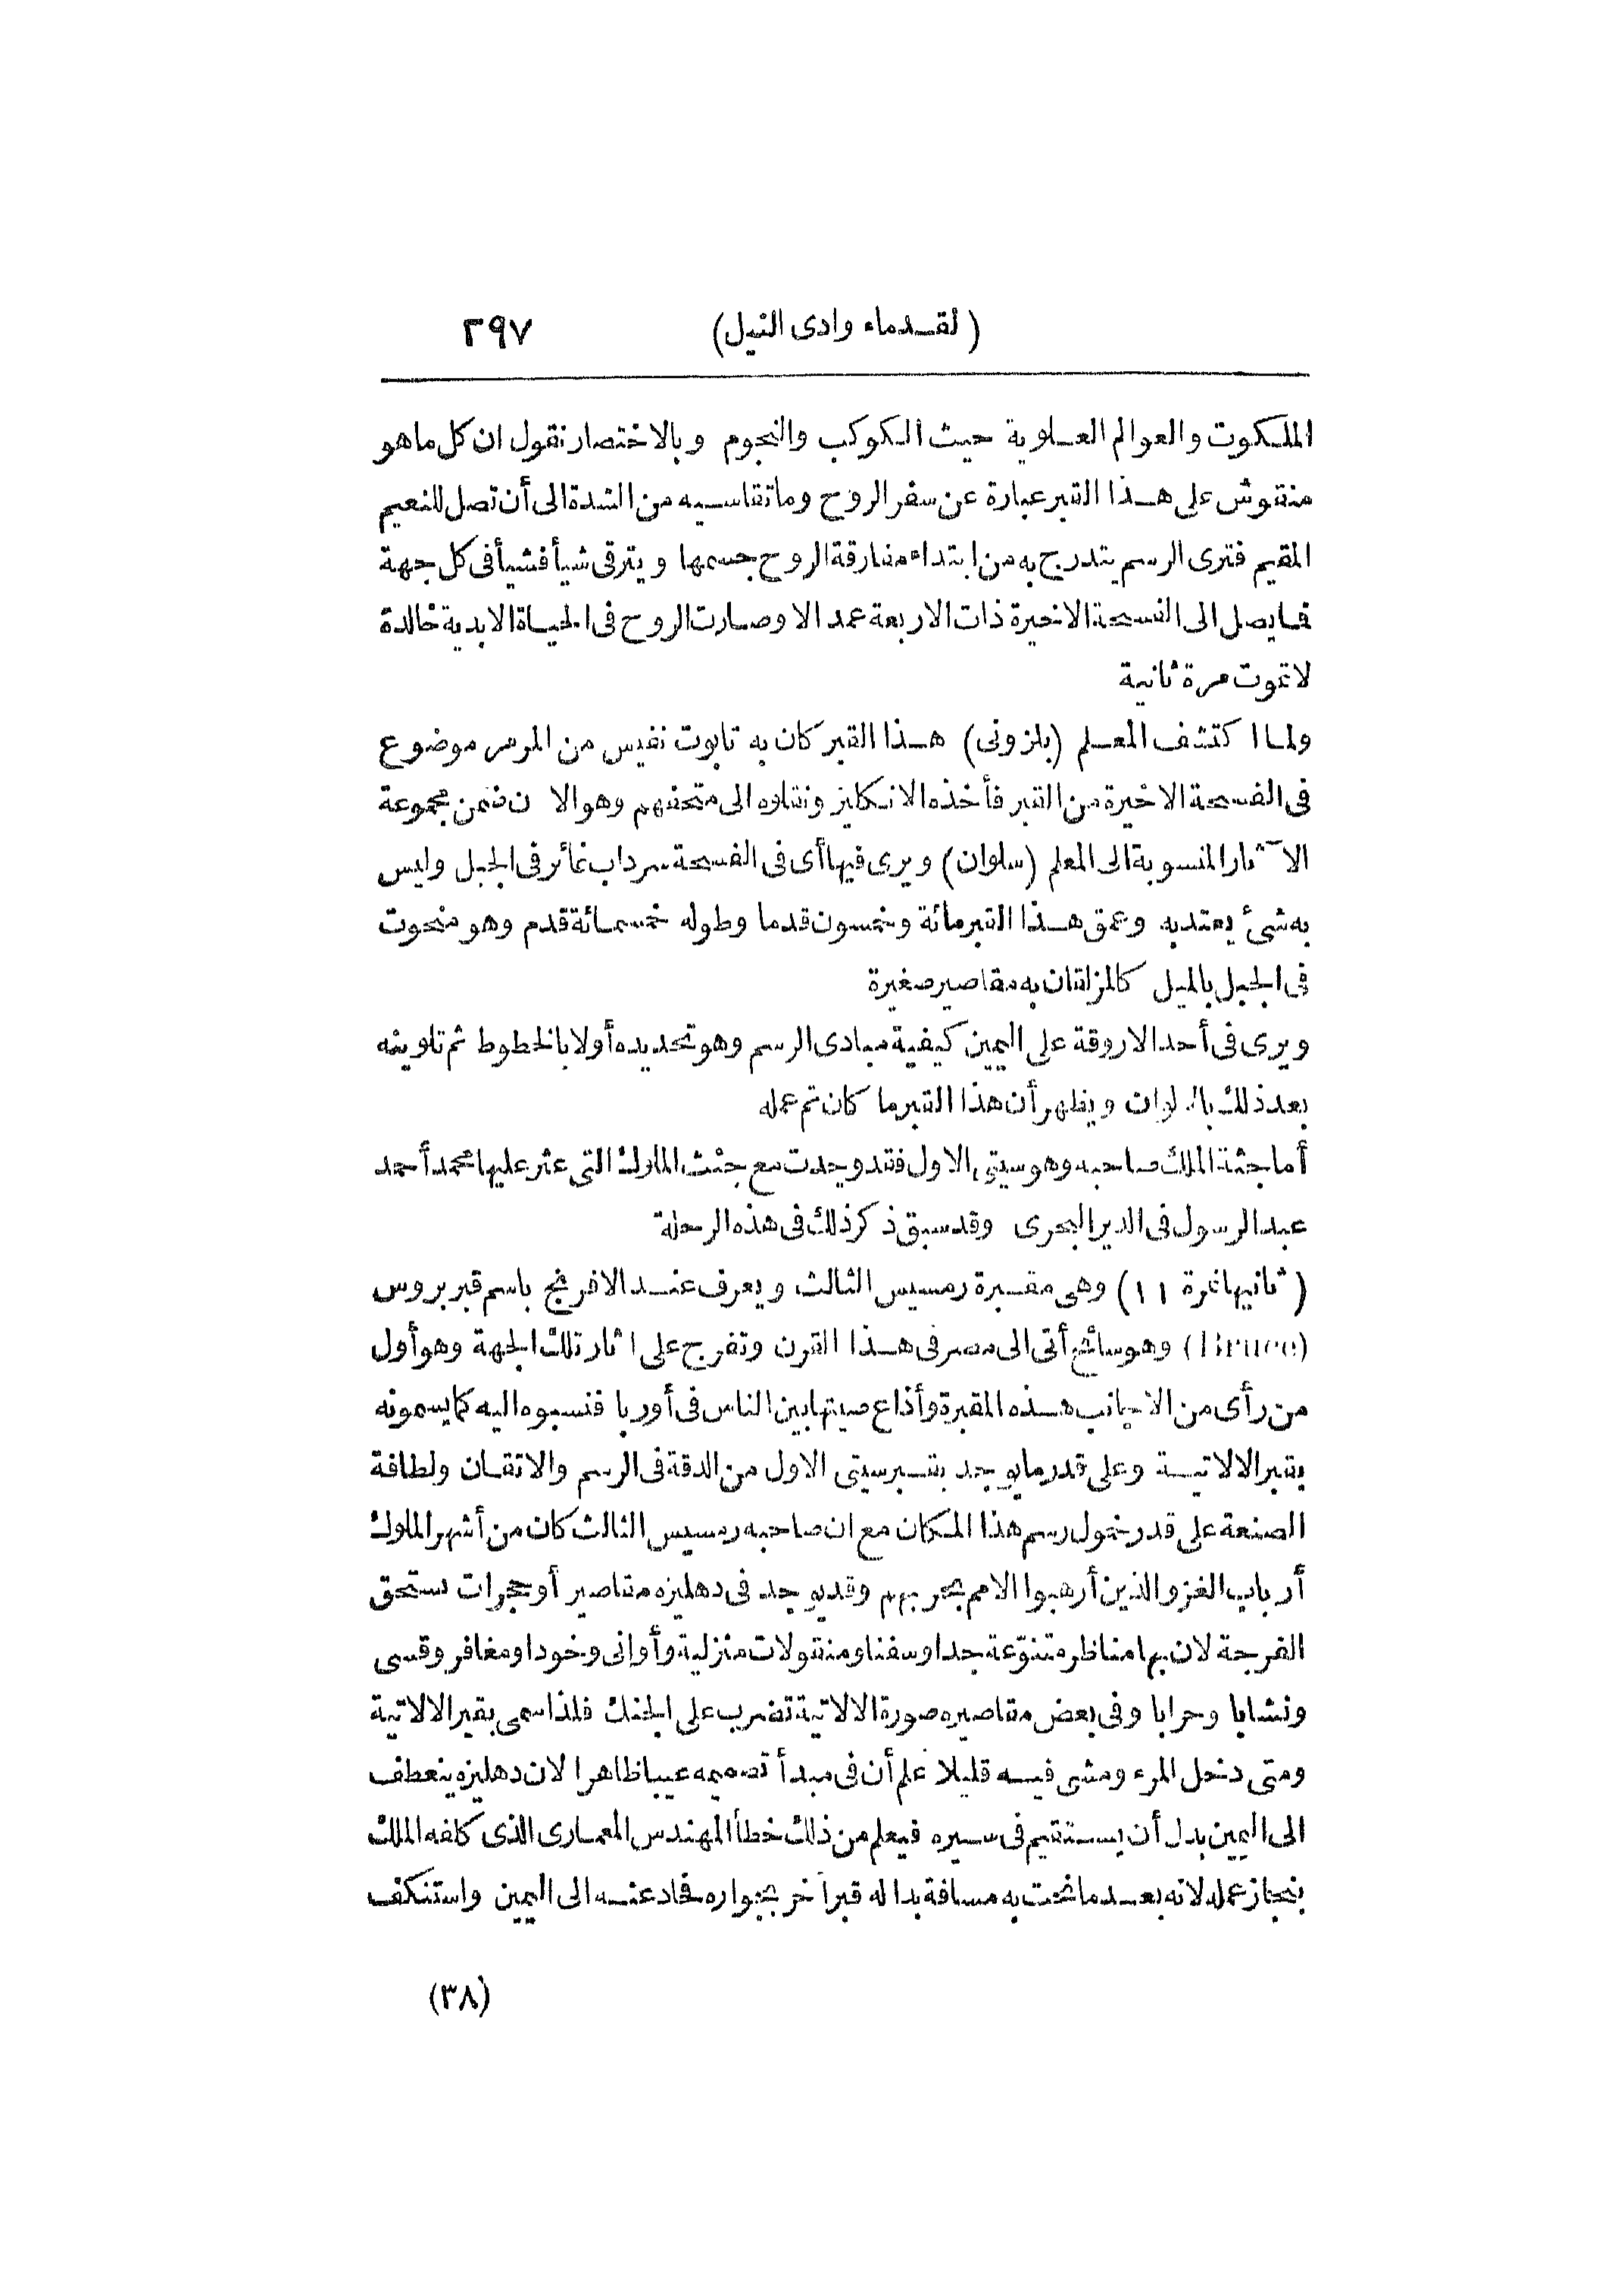 (لقدماء وادى النيل) ٢٩٧
الملكوت والعوالم العلوية حيث الكوكب والنجوم وبالاختصار نقول ان كل ما هو
منقوش على هذا القبر عبارة عن سفر الروح وما تقاسيه من الشدة الى أن تصل للنعيم
المقيم فترى الرسم يتدرج به من ابتداء مفارقة الروح جسمها ويترقى شيأ فشيأ فى كل جهة
فما يصل الى الفسحة الاخيرة ذات الاربعة عمد الا وصارت الروح فى الحياة الابدية خالدة
لا تموت مرة ثانية
ولما اكتشف المعلم (بلزونى) هذا القبر كان به تابوت نفيس من المرمر موضوع
فى الفسحة الاخيرة من القبر فأخذه الانكليز ونقلوه الى متحفهم وهو الا ن ضمن مجموعة
الآ ثار المنسوبة الى المعلم (سلوان) ويرى فيها أى فى الفسحة سرداب غائر فى الجبل وليس
به شئ يعتد به وعمق هذا القبر مائة وخمسون قدما وطوله خمسمائة قدم وهو منحوت
فى الجبل بالميل كالمزلقان به مقاصير صغيرة
ويرى فى أحد الاروقة على اليمين كيفية مبادى الرسم وهو تحديده أولا بالخطوط ثم تلوينه
بعد ذلك بالالوان ويظهر أن هذا القبر ما كان تم عمله
أما جثة الملك صاحبه وهو سيتى الاول فقد وجدت مع جثث الملوك التى عثر عليها محمد أحمد
عبد الرسول فى الدير البحرى وقد سبق ذكر ذلك فى هذه الرحلة
(ثانيها نمرة ١١) وهى مقبرة رمسيس الثالث ويعرف عند الافرنج باسم قبر بروس
(Bruce) وهو سائح أتى الى مصر فى هذا القرن وتفرج على اثار تلك الجهة وهو أول
من رأى من الاجانب هذه المقبرة وأذاع صيتها بين الناس فى أوربا فنسبوه اليه كما يسمونه
بقبر الالاتية وعلى قدر ما يوجد بقبر سيتى الاول من الدقة فى الرسم والاتقان ولطافة
الصنعة على قدر خمول رسم هذا المكان مع ان صاحبه رمسيس الثالث كان من أشهر الملوك
أرباب الغزو الذين أرهبوا الامم بحربهم وقد يوجد فى دهليزه مقاصير أو حجرات تستحق
الفرجة لان بها مناظر متنوّعة جدا وسفنا ومنقولات منزلية وأوانى وخودا ومغافر وقسى
ونشابا وحرابا وفى بعض مقاصيره صورة الالاتية تضرب على الجنك فلذا سمى بقبر الالاتية
ومتى دخل المرء ومشى فيه قليلا علم أن فى مبدأ تصميمه عيبا ظاهرا لان دهليزه ينعطف
الى اليمين بدل أن يستقيم فى سيره فيعلم من ذلك خطأ المهندس المعمارى الذى كلفه الملك
بنجاز عمله لانه بعد ما نحت به مسافة بدا له قبر آخر بجواره فحاد عنه الى اليمين واستنكف
(٣٨)